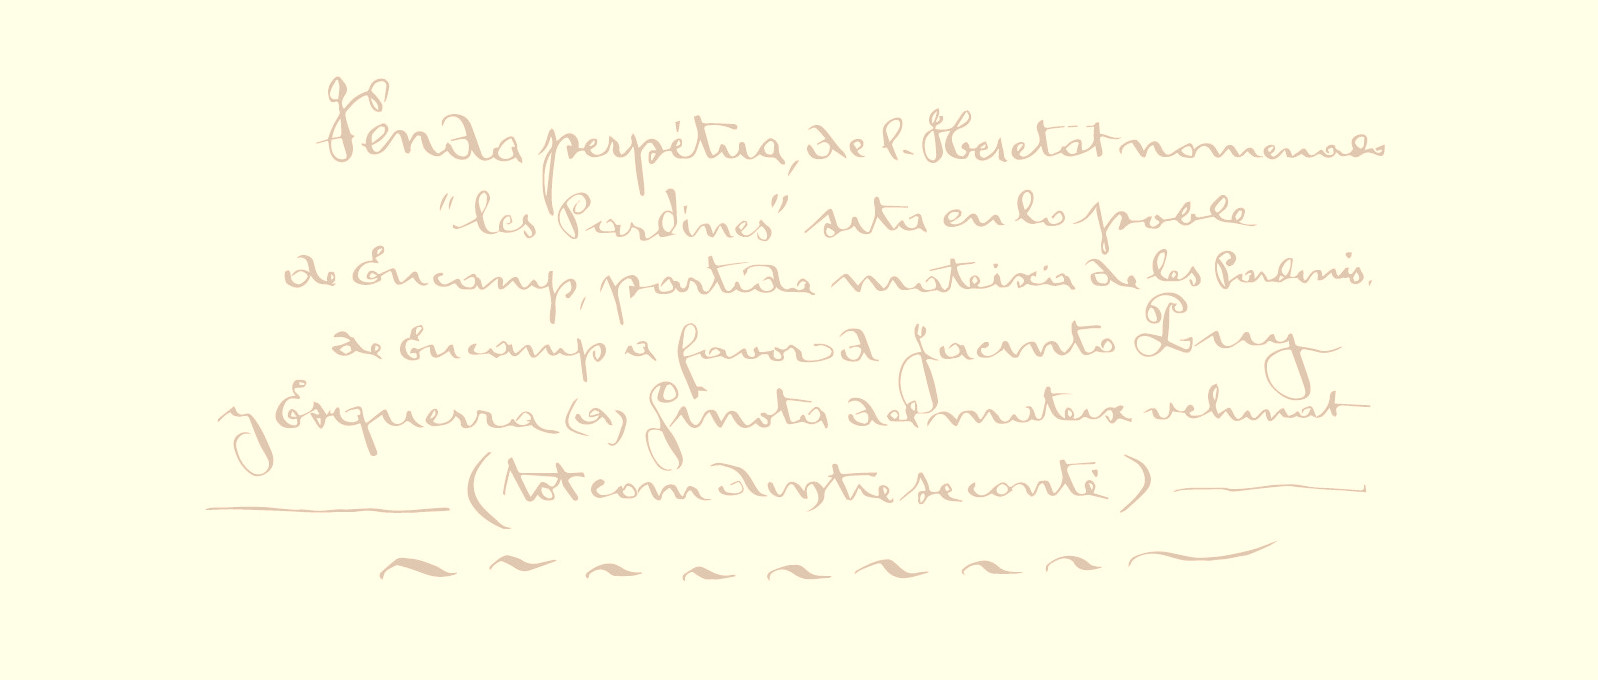 Venda perpétua, de l. Heretat nomenada
"les Pardines" sita en lo poble
de Encamp, partida mateixia de les Pardinis.
de Encamp a favor d Jacinto Puy
y Esquerra (a) Ginota del mateix vehinat
(tot com dintre se conté)